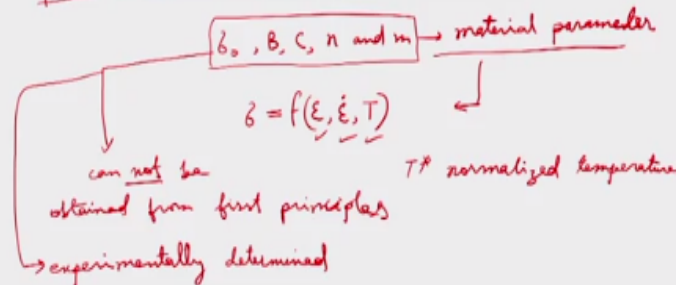 σ₀, B, C, n and m → material parameter
σ = f(ε, ε̇, T)
can not be
obtained from first principles
T* normalized temperature
experimentally determined